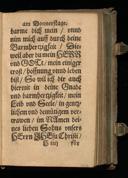 am Donnerstage.
barme dich mein / vnnd
nim mich auff durch deine
Barmhertzigkeit / Die-
weil aber du mein HERR
vnd GOTT / mein einiger
trost / hoffnung vnnd leben
bist / So wil ich dir auch
hiermit in deine Gnade
vnd barmhertzigkeit / mein
Leib vnd Seele / in gentz-
lichem vnd demütigem ver-
trawen / im Namen dei-
nes lieben Sohns vnsers
HErrn Jhesu Christi /